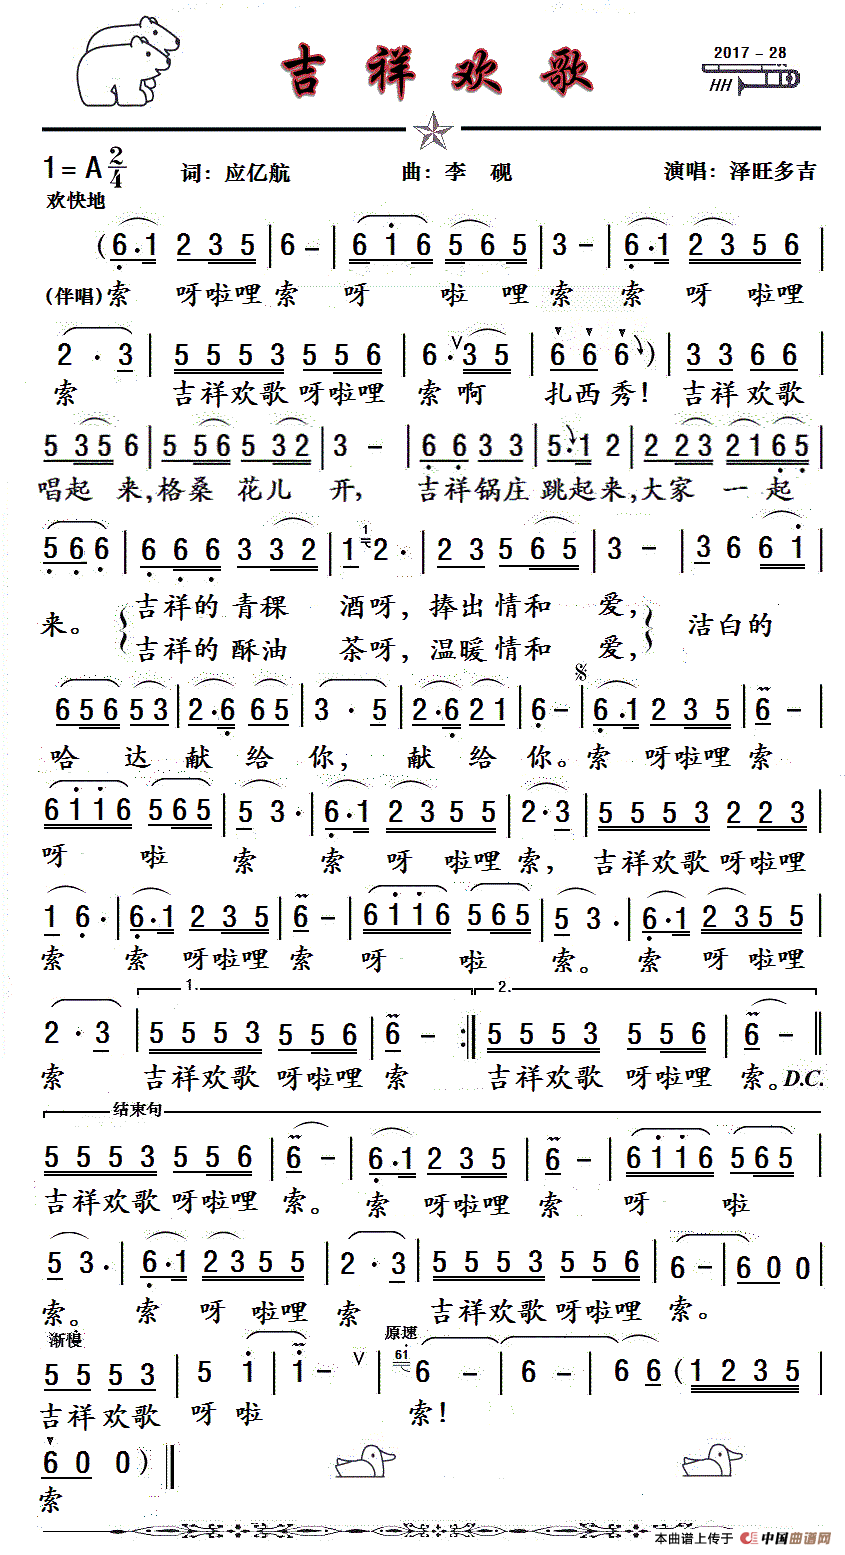 吉祥欢歌
2017－28
HH
1=A 2/4
词：应亿航 曲：李 砚 演唱：泽旺多吉
欢快地
(6·1 2 3 5 | 6 - | 6 1 6 5 6 5 | 3 - | 6·1 2 3 5 6 |
(伴唱)索 呀啦哩 索 呀 啦 哩 索 索 呀 啦哩
2 · 3 | 5 5 5 3 5 5 6 | 6 · 3 5 | 6 6 6 ) | 3 3 6 6 |
索 吉祥欢歌 呀啦哩 索 啊 扎西秀！ 吉祥欢歌
5 3 5 6 | 5 5 6 5 3 2 | 3 - | 6 6 3 3 | 5·1 2 | 2 2 3 2 1 6 5 |
唱起 来，格桑 花儿 开， 吉祥锅庄 跳起来，大家 一起
5 6 6 | 6 6 6 3 3 2 | 1 1 2 · | 2 3 5 6 5 | 3 - | 3 6 6 1 |
来。 吉祥的 青稞 酒呀，捧出 情和 爱， 洁白的
吉祥的 酥油 茶呀，温暖 情和 爱，
6 5 6 5 3 | 2·6 6 5 | 3 · 5 | 2·6 2 1 | 6 - | 6·1 2 3 5 | 6 - |
哈 达 献 给 你， 献 给 你。索 呀啦哩 索
6 1 1 6 5 6 5 | 5 3 · | 6·1 2 3 5 5 | 2 · 3 | 5 5 5 3 2 2 3 |
呀 啦 索 索 呀 啦哩 索， 吉祥欢歌 呀啦哩
1 6 · | 6·1 2 3 5 | 6 - | 6 1 1 6 5 6 5 | 5 3 · | 6·1 2 3 5 5 |
索 索 呀啦哩 索 呀 啦 索。 索 呀 啦哩
1. 2.
2 · 3 | 5 5 5 3 5 5 6 | 6 - :| 5 5 5 3 5 5 6 | 6 - ||
索 吉祥欢歌 呀啦哩 索 吉祥欢歌 呀啦哩 索。D.C.
结束句
5 5 5 3 5 5 6 | 6 - | 6·1 2 3 5 | 6 - | 6 1 1 6 5 6 5 |
吉祥欢歌 呀啦哩 索。 索 呀啦哩 索 呀 啦
5 3 · | 6·1 2 3 5 5 | 2 · 3 | 5 5 5 3 5 5 6 | 6 - | 6 0 0 |
索。 索 呀 啦哩 索 吉祥欢歌 呀啦哩 索。
渐慢 原速
5 5 5 3 | 5 1 | 1 - | 61 6 - | 6 - | 6 6 ( 1 2 3 5 |
吉祥欢歌 呀 啦 索！
6 0 0 ) ||
索
本曲谱上传于 中国曲谱网